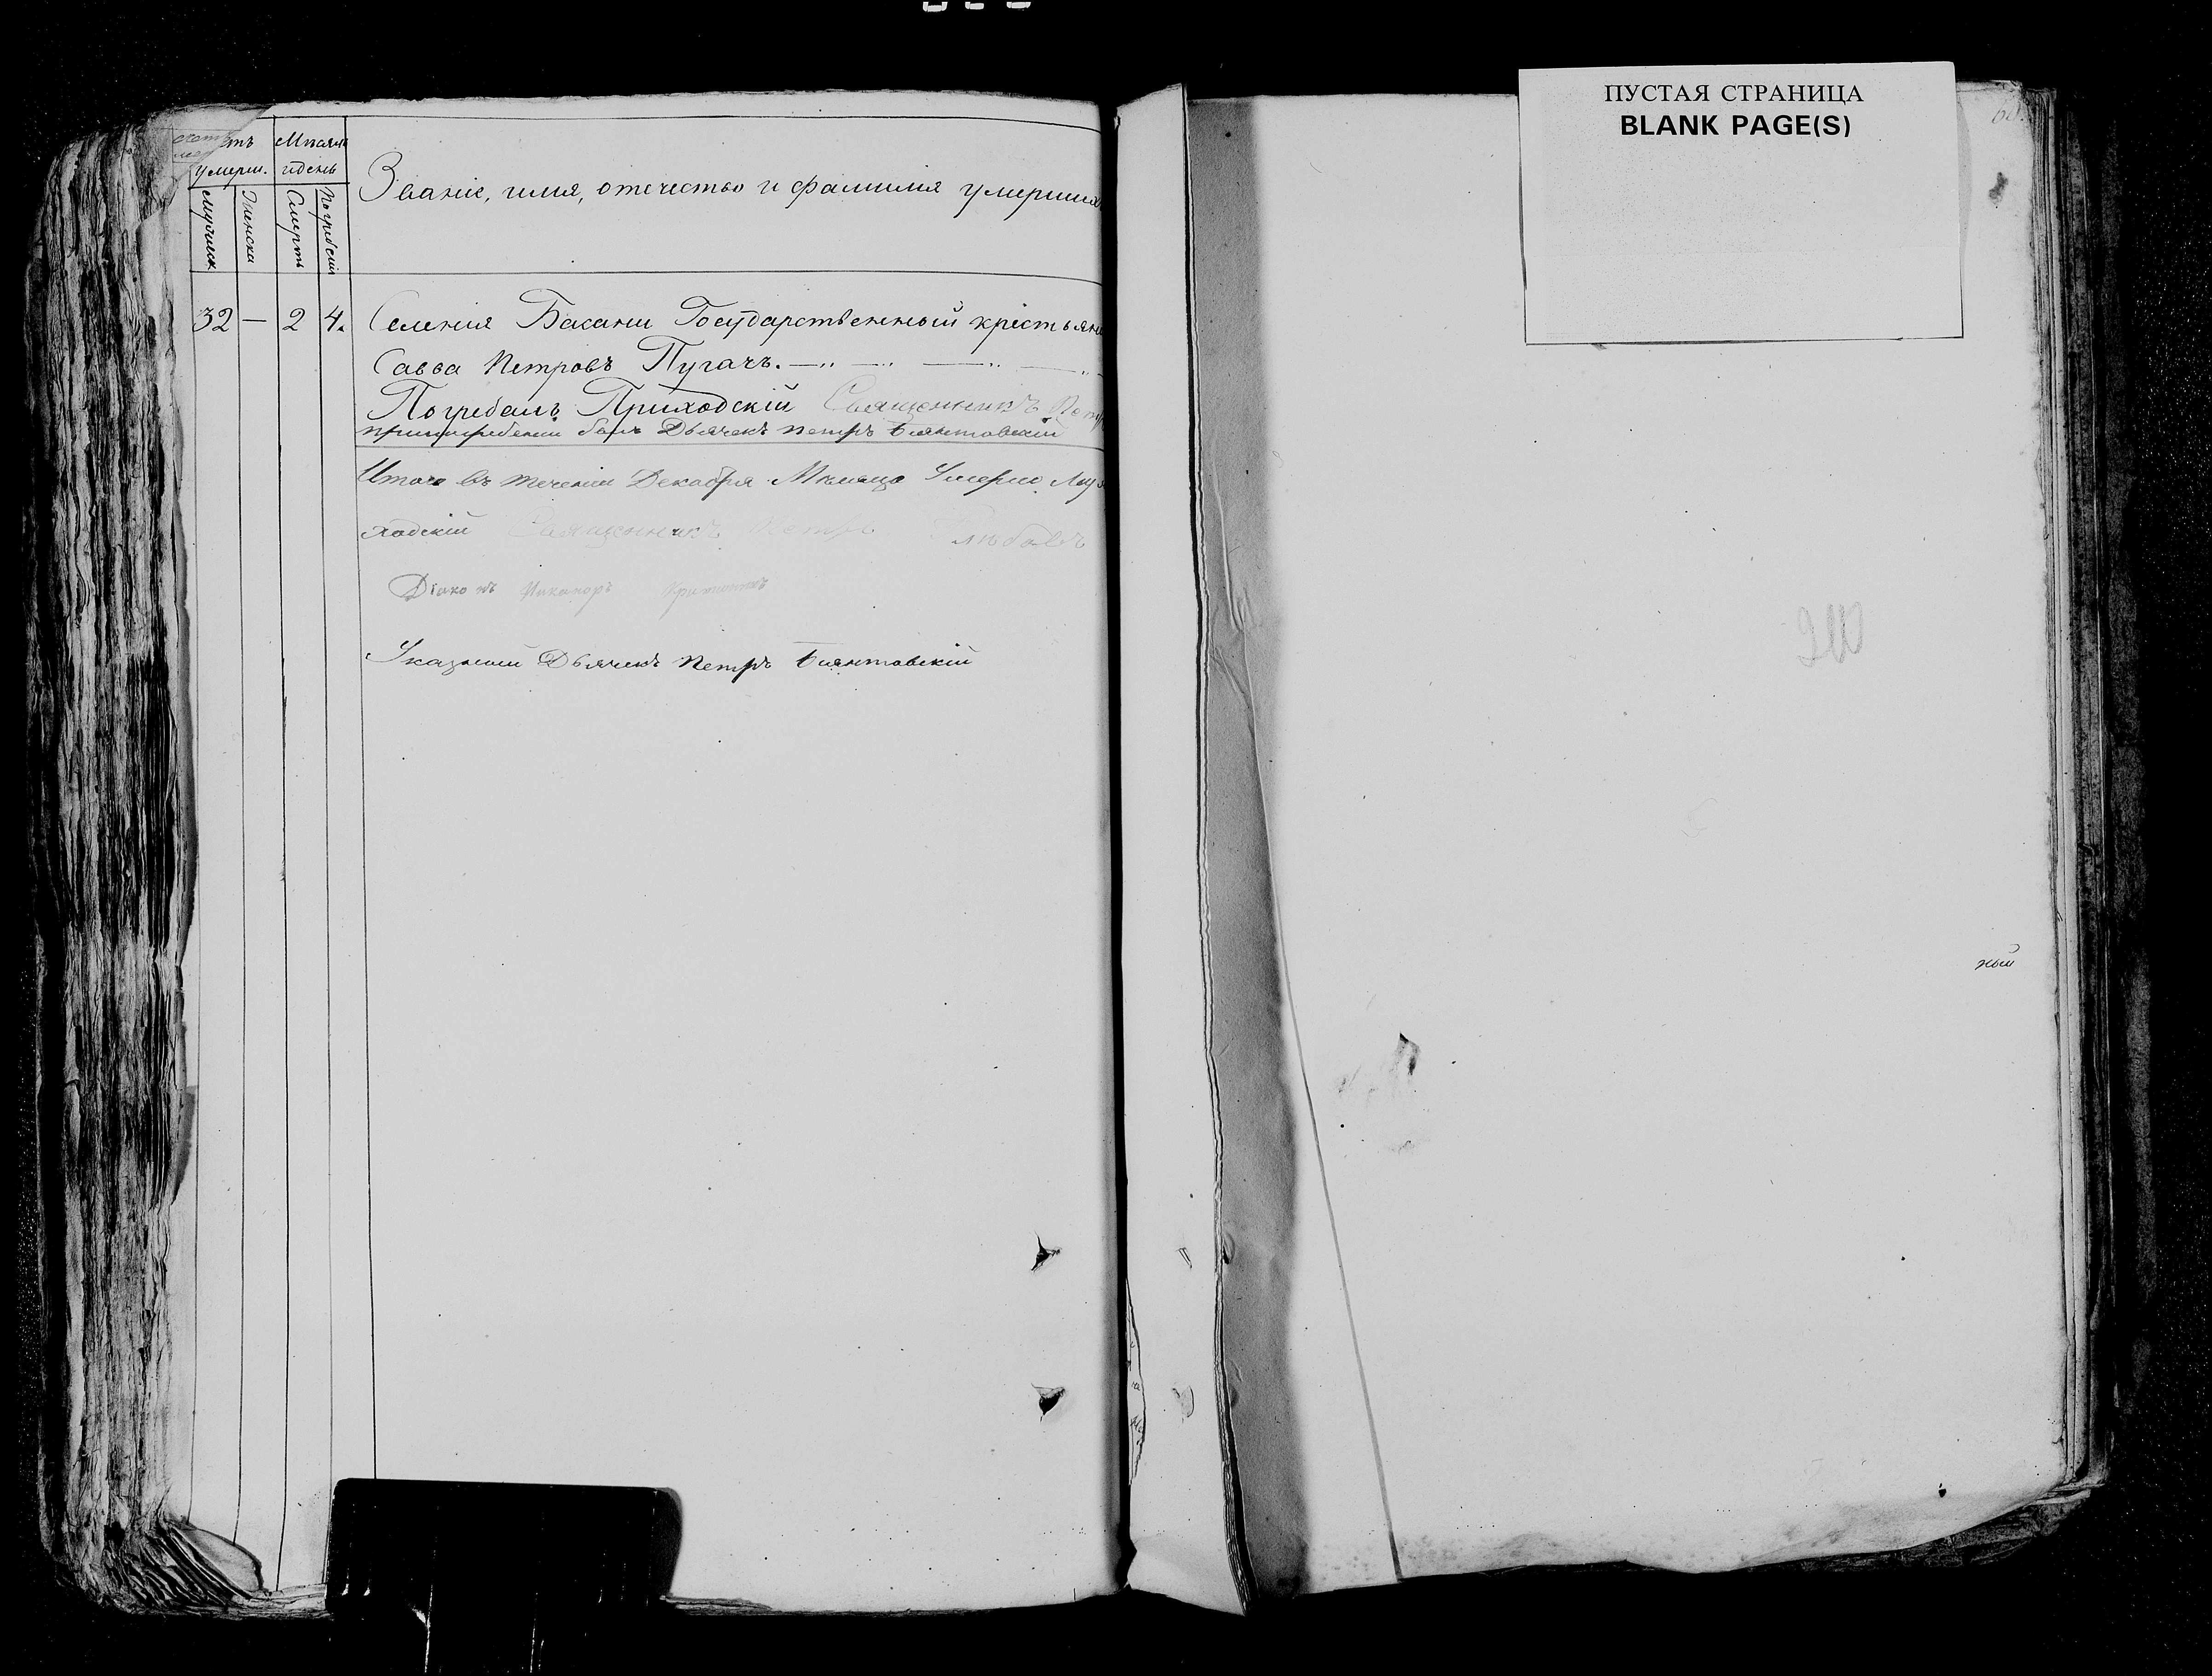 Счетъ умерш.
Мѣсяцъ и день
Мужеск
Женска
Смерть
Погребенія
Званіе, имя, отечество и фамилія умершихъ
32 — 2 4. Селенія Бакани Государственный крестьяни
Савва Петровъ Пугачъ.
Погребалъ Приходскій Священникъ Петр
при погребеніи былъ Дьячекъ Петръ
Итого въ теченіи Декабря Мѣсяца Умерло Муж
ходскій Священникъ Петръ
Діаконъ Никаноръ
Указный Дьячекъ Петръ
ПУСТАЯ СТРАНИЦА
BLANK PAGE(S)
ный